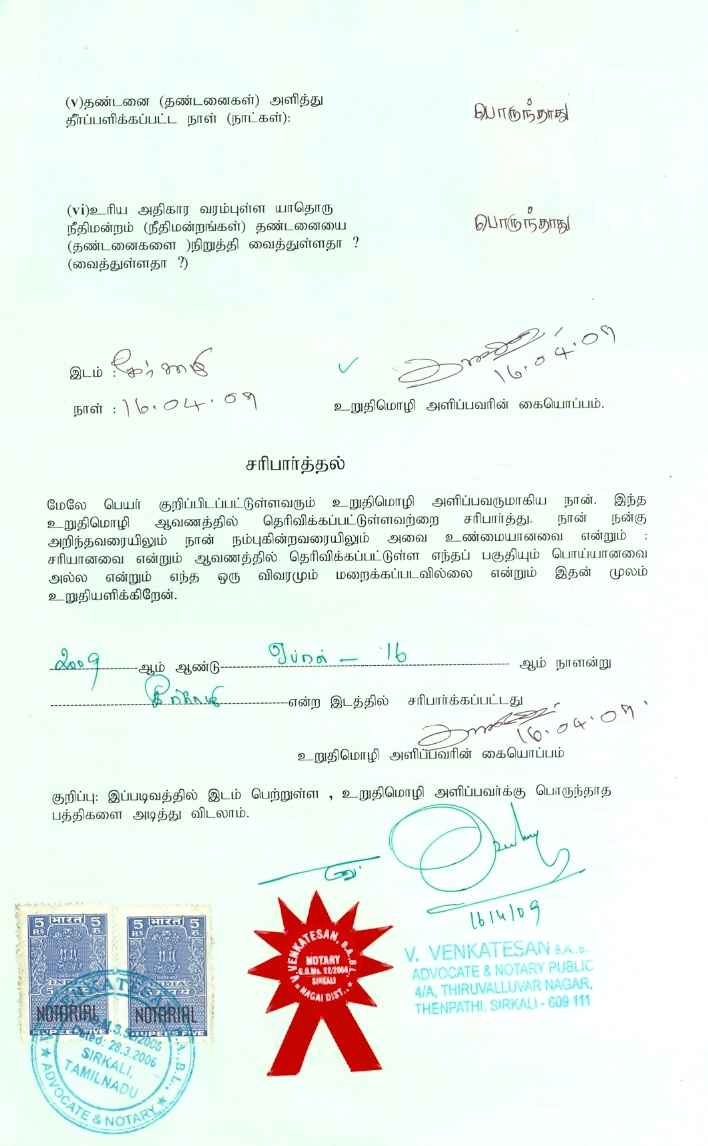 (v)தண்டனை (தண்டனைகள்) அளித்து
தீர்ப்பளிக்கப்பட்ட நாள் (நாட்கள்):
பொருந்தாது
(vi)உரிய அதிகார வரம்புள்ள யாதொரு
நீதிமன்றம் (நீதிமன்றங்கள்) தண்டனையை
(தண்டனைகளை )நிறுத்தி வைத்துள்ளதா ?
(வைத்துள்ளதா ?)
பொருந்தாது
இடம் : சீர்காழி
16.04.09
நாள் : 16.04.09
உறுதிமொழி அளிப்பவரின் கையொப்பம்.
சரிபார்த்தல்
மேலே பெயர் குறிப்பிடப்பட்டுள்ளவரும் உறுதிமொழி அளிப்பவருமாகிய நான். இந்த
உறுதிமொழி ஆவணத்தில் தெரிவிக்கப்பட்டுள்ளவற்றை சரிபார்த்து. நான் நன்கு
அறிந்தவரையிலும் நான் நம்புகின்றவரையிலும் அவை உண்மையானவை என்றும் :
சரியானவை என்றும் ஆவணத்தில் தெரிவிக்கப்பட்டுள்ள எந்தப் பகுதியும் பொய்யானவை
அல்ல என்றும் எந்த ஒரு விவரமும் மறைக்கப்படவில்லை என்றும் இதன் முலம்
உறுதியளிக்கிறேன்.
2009 ஆம் ஆண்டு ஏப்ரல் - 16 ஆம் நாளன்று
சீர்காழி என்ற இடத்தில் சரிபார்க்கப்பட்டது
16.04.09
உறுதிமொழி அளிப்பவரின் கையொப்பம்
குறிப்பு: இப்படிவத்தில் இடம் பெற்றுள்ள , உறுதிமொழி அளிப்பவர்க்கு பொருந்தாத
பத்திகளை அடித்து விடலாம்.
16/4/09
V. VENKATESAN B.A.,B.L.
ADVOCATE & NOTARY PUBLIC
4/A, THIRUVALLUVAR NAGAR,
THENPATHI, SIRKALI - 609 111
V. VENKATESAN, B.A.B.L.
NOTARY
G.O.Ms. 52/2006
SIRKALI
NAGAI DIST.,
5 भारत 5
RS रु.
INDIA
NOTARIAL
RUPEES FIVE
5 भारत 5
RS रु.
INDIA
NOTARIAL
RUPEES FIVE
Dated: 28.3.2006
SIRKALI,
TAMILNADU
ADVOCATE & NOTARY